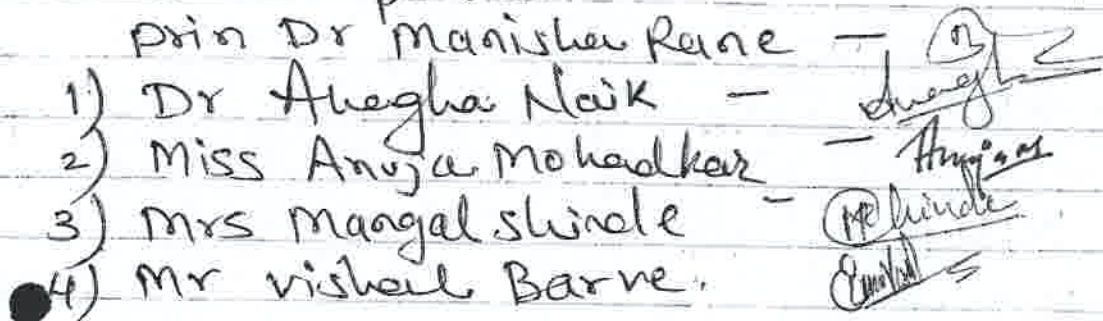 prin Dr Manisha Rane -
1) Dr Anegha Naik -
2) Miss Anuja Mohadkar -
3) Mrs Mangal Shinde -
4) Mr vishal Barve.